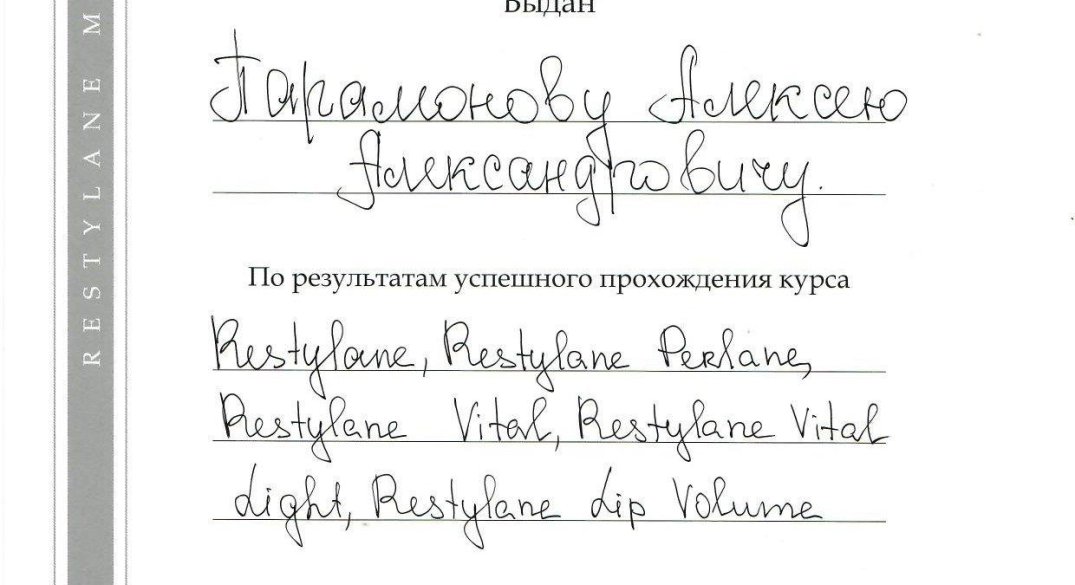 Выдан
Парамонову Алексею
Александровичу.
По результатам успешного прохождения курса
Restylane, Restylane Perlane,
Restylane Vital, Restylane Vital
Light, Restylane Lip Volume
RESTYLANE M